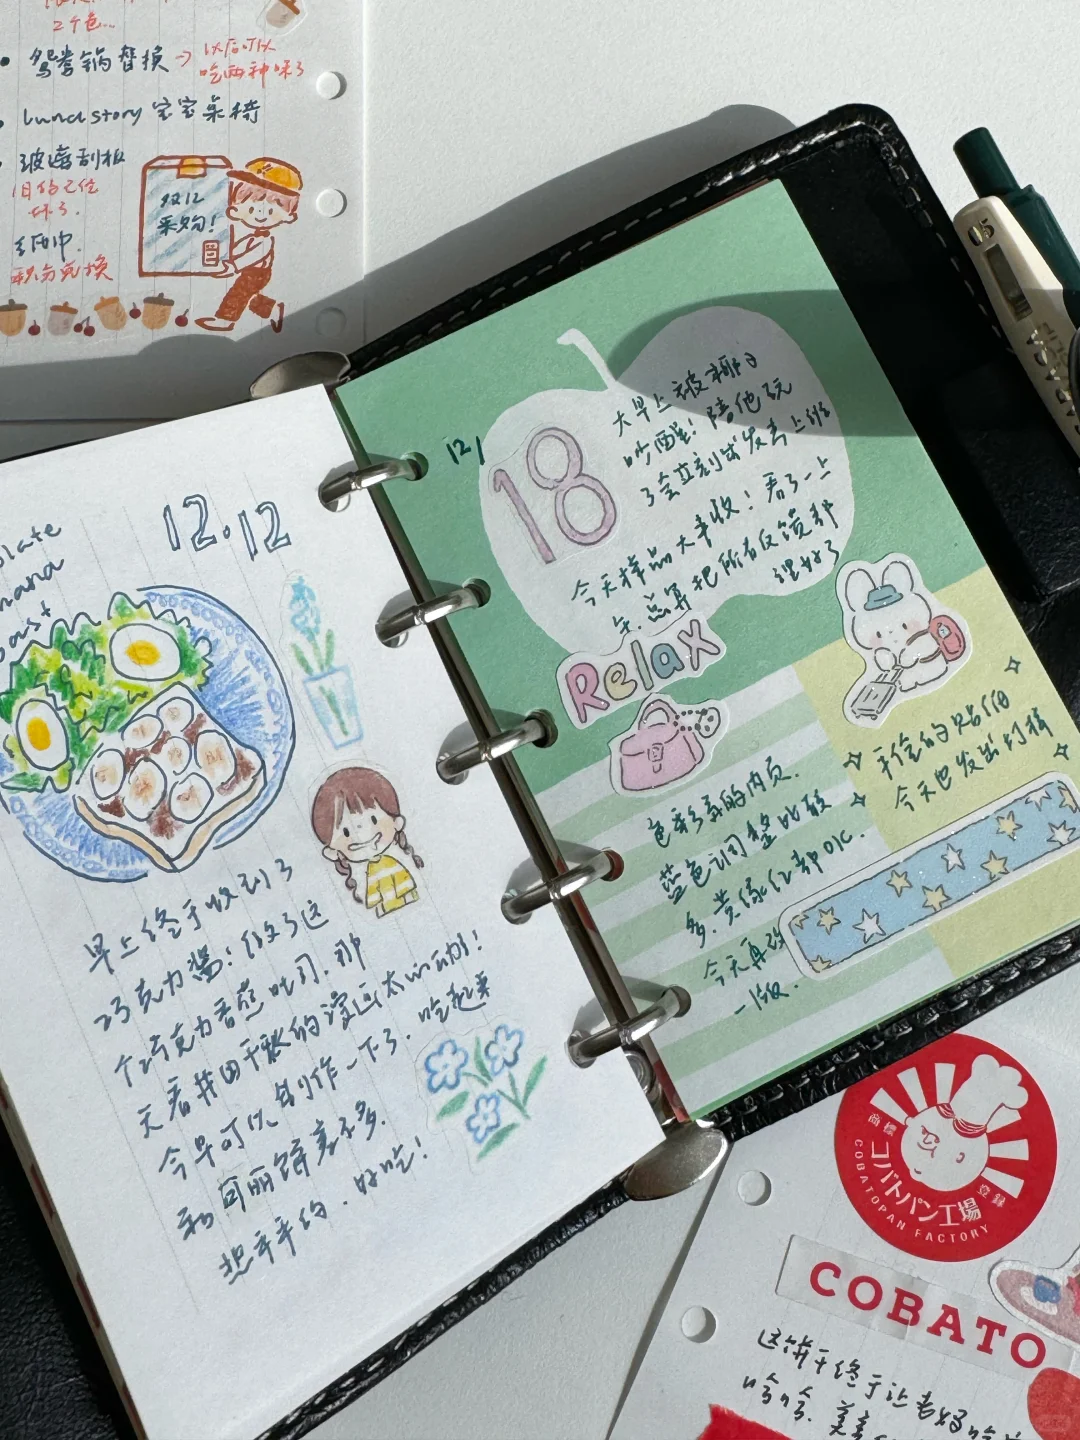 2个色...
鸳鸯锅替换 → 以后可以
吃两种味了
lunastory 宝宝桌椅
玻璃刮板
旧的已经
坏了.
双12
采购!
纸巾.
积分兑换
12.12
早上终于收到了
巧克力酱！做了这
个巧克力香蕉吐司.那
天看井田千秋的漫画太心动！
今早可以创作一下了.吃起来
和可丽饼差不多.
想年年的.好吃！
12/
18
大早上被
吵醒！陪他玩
了会立刻出发去上班
今天样品大丰收！看了一上
午.总算把所有反馈都
理好了
RelaX
色彩系的内页.
蓝色调整比较
多.黄绿红都OK.
今天再改
一版.
手绘的贴纸
今天也发出打样
0.5
SARASA
商標
コバトパン工場
登録
COBATOPAN FACTORY
COBATO
这饼干终于让
哈哈.美美